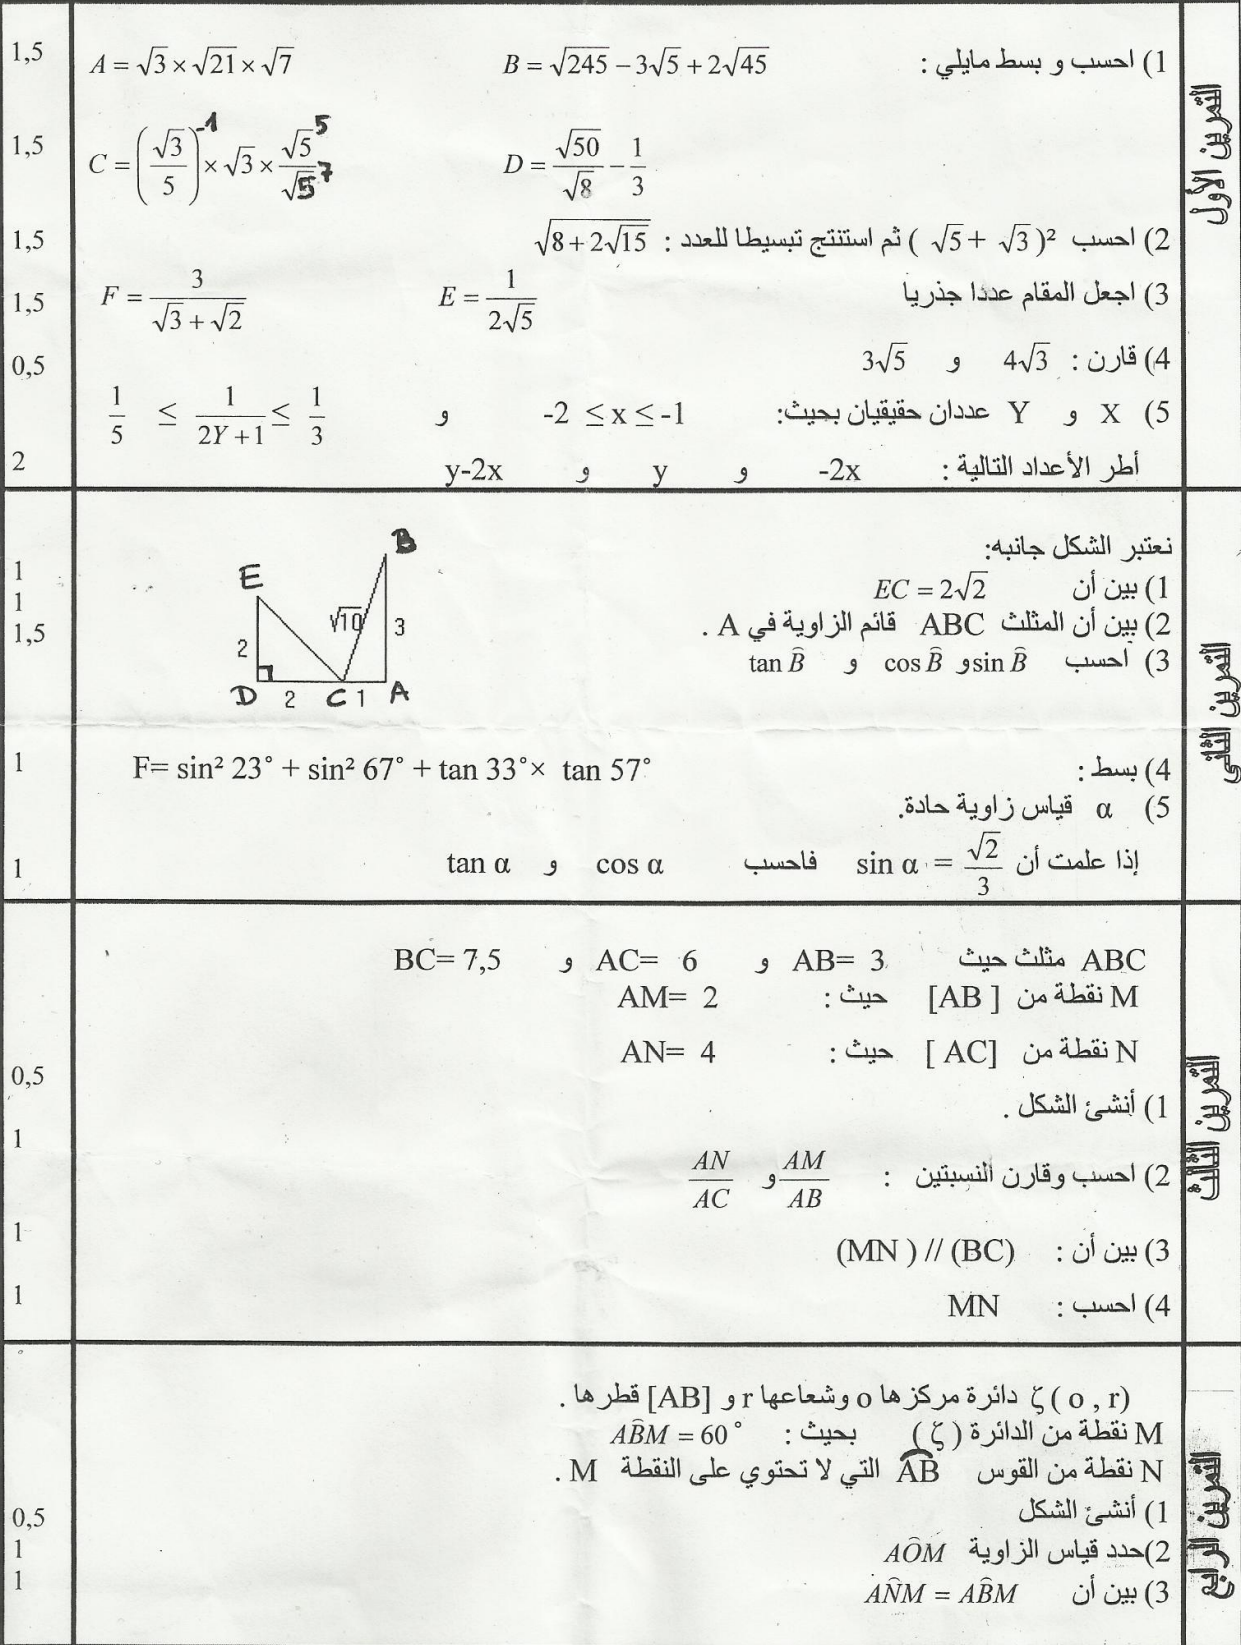 التمرين الأول
1,5 1) احسب و بسط مايلي : B = √245 − 3√5 + 2√45 A = √3 × √21 × √7
1,5 D = √50/√8 − 1/3 C = (√3/5)⁻¹ × √3 × √5⁵/√5⁷
1,5 2) احسب (√5 + √3)² ثم استنتج تبسيطا للعدد : √(8 + 2√15)
1,5 3) اجعل المقام عددا جذريا E = 1/(2√5) F = 3/(√3 + √2)
0,5 4) قارن : 4√3 و 3√5
5) X و Y عددان حقيقيان بحيث: -2 ≤ x ≤ -1 و 1/5 ≤ 1/(2Y+1) ≤ 1/3
2 أطر الأعداد التالية : -2x و y و y-2x
التمرين الثاني
نعتبر الشكل جانبه:
1 1) بين أن EC = 2√2
1 2) بين أن المثلث ABC قائم الزاوية في A .
1,5 3) احسب sin B̂ و cos B̂ و tan B̂
B
E
√10 3
2
D 2 C 1 A
1 4) بسط : F= sin² 23° + sin² 67° + tan 33°× tan 57°
5) α قياس زاوية حادة.
1 إذا علمت أن sin α = √2/3 فاحسب cos α و tan α
التمرين الثالث
ABC مثلث حيث AB= 3 و AC= 6 و BC= 7,5
M نقطة من [AB ] حيث : AM= 2
N نقطة من [AC ] حيث : AN= 4
0,5 1) أنشئ الشكل .
1 2) احسب وقارن النسبتين : AM/AB و AN/AC
1 3) بين أن : (MN ) // (BC)
1 4) احسب : MN
التمرين الرابع
ζ ( o , r) دائرة مركزها o وشعاعها r و [AB] قطرها .
M نقطة من الدائرة ( ζ ) بحيث : AB̂M = 60°
N نقطة من القوس A͡B التي لا تحتوي على النقطة M .
0,5 1) أنشئ الشكل
1 2)حدد قياس الزاوية AÔM
1 3) بين أن AN̂M = AB̂M